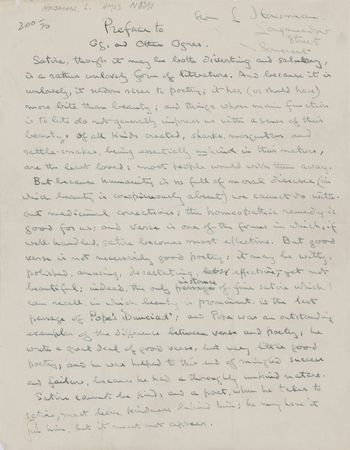 HENSMAN, L. AMS N 8891
200/70
from L Hensman
Street
Preface to
Gg, and Other Ogres.
Satire, though it may be both diverting and salutary,
is a rather unlovely form of literature. And because it is
unlovely, it seldom rises to poetry; it has (or should have)
more bite than beauty; and things whose main function
is to bite do not generally impress us with a sense of their
beauty. Of all kinds created, sharks, mosquitoes and
rattle-snakes, being essentially unkind in their nature,
are the least loved; most people would wish them away.
But because humanity is so full of moral disease (in
which beauty is conspicuously absent) we cannot do with-
out medicinal correctives; the homeopathic remedy is
good for us; and verse is one of the forms in which, if
well handled, satire becomes most effective. But good
verse is not necessarily good poetry: it may be witty,
polished, amusing, devastating, effective, yet not
beautiful; indeed, the only instance of fine satire which I
can recall, in which beauty is prominent, is the last
passage of Pope's 'Dunciad'; and Pope was an outstanding
example of the difference between verse and poetry, he
wrote a great deal of good verse, but very little good
poetry, and he was helped to this end of mingled success
and failure, because he had a thoroughly unkind nature.
Satire cannot be kind; and a poet, when he takes to
satire, must leave kindness behind him; he may have it
in him, but it must not appear.